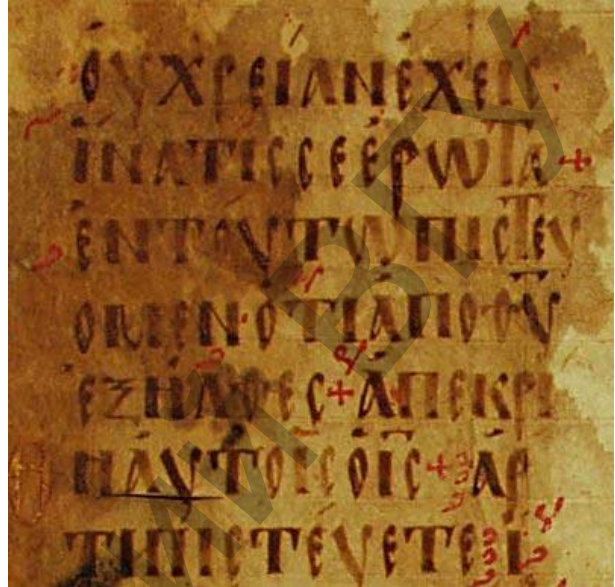 ΟΥΧΡΕΙΑΝΕΧΕΙϹ
ΙΝΑΤΙϹϹΕΕΡΩΤΑ
ΕΝΤΟΥΤΩΠΙϹΤΕΥ
ΟΜΕΝ·ΟΤΙΑΠΟΘΥ
ΕΞΗΛΘΕϹ+ΑΠΕΚΡΙ
ΗΑΥΤΟΙϹΟΙϹ+ΑΡ
ΤΙΠΙϹΤΕΥΕΤΕΙ